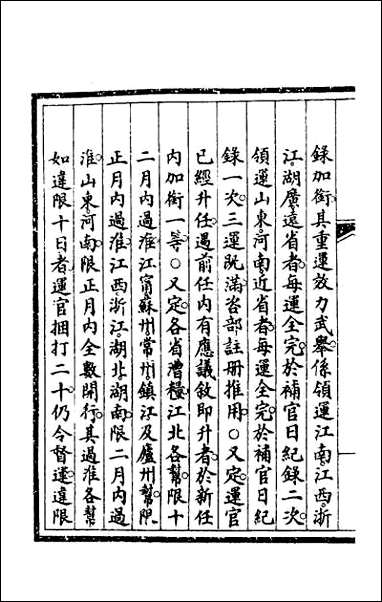 錄加銜其重運效力武舉係領運江南江西浙
江湖廣遠省者每運全完於補官日紀錄二次
領運山東河南近省者每運全完於補官日紀
錄一次三運既滿咨部註冊推用○又定運官
已經升任遇前任內有應議敘即升者於新任
內加銜一等○又定各省漕糧江北各幫限十
二月內過淮江甯蘇州常州鎮江及廬州幫限
正月內過淮江西浙江湖北湖南限二月內過
淮山東河南限正月內全數開行其過淮各幫
如違限十日者運官捆打二十仍令督運違限